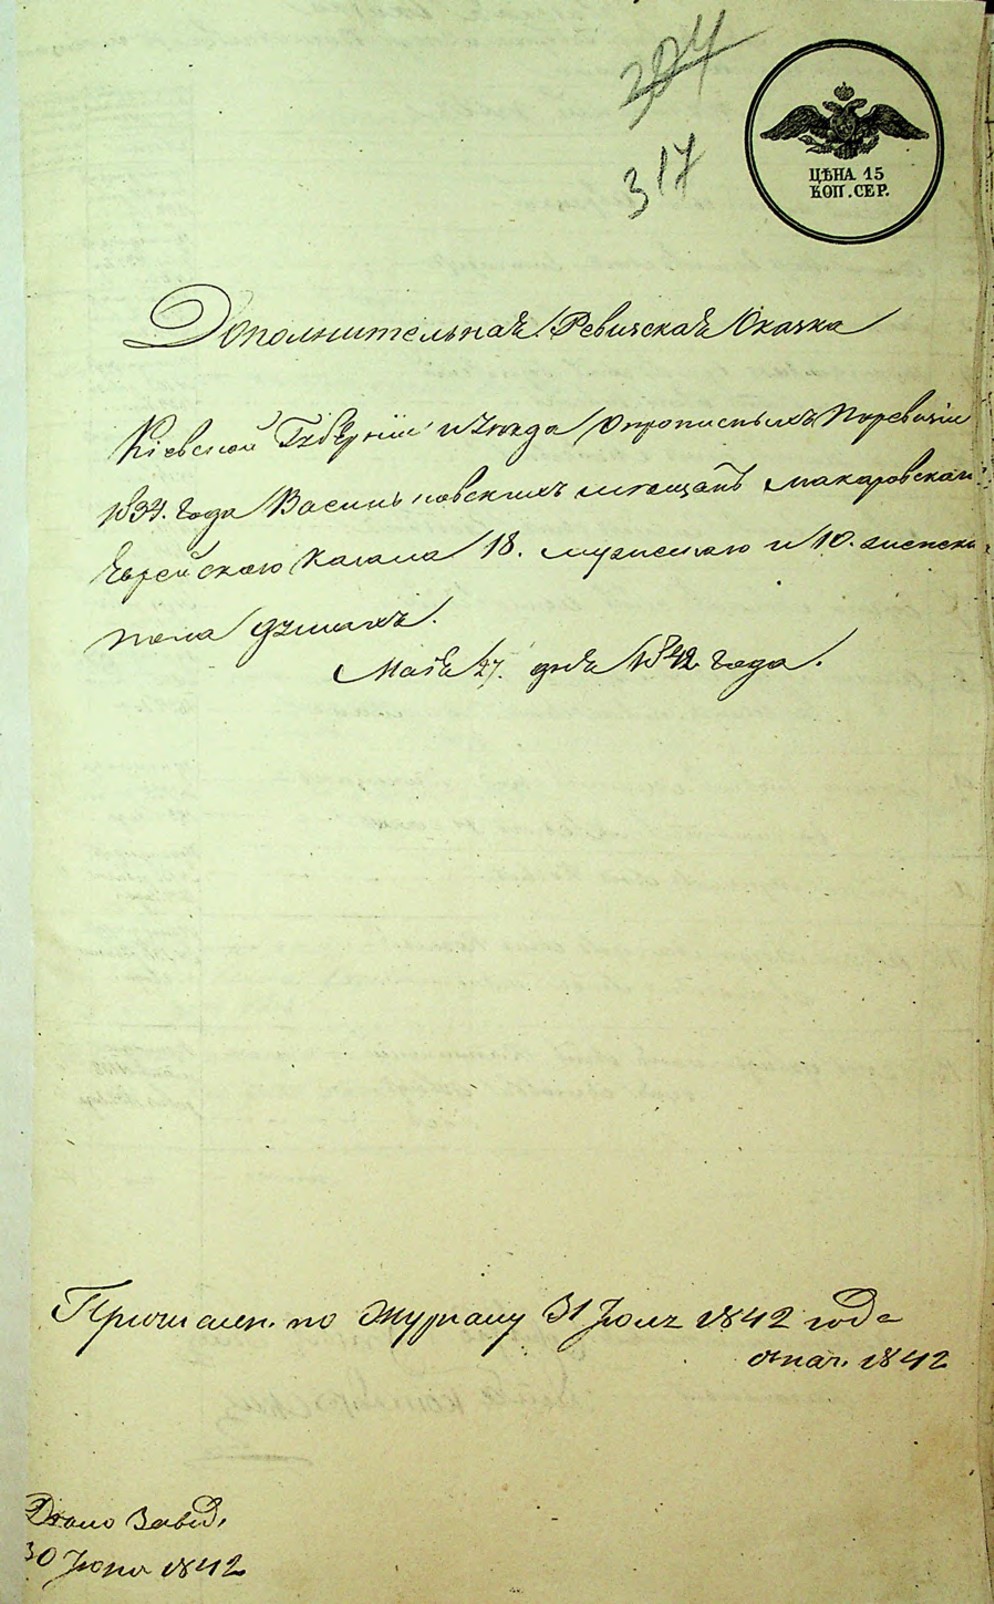 304
317
ЦѢНА 15
КОП. СЕР.
Дополнительная Ревизская Сказка
Кіевской Губерніи и Уезда опрописныхъ Поревизіи
1834. года Васильковскихъ мещанъ Макаровскаго
Еврейскаго Кагала 18. мужескаго и 10. женска
пола душахъ.
Маія 27. дня 1842 года.
по Журналу 31 Июля 1842 года
1842
Завед.
30 Июня 1842